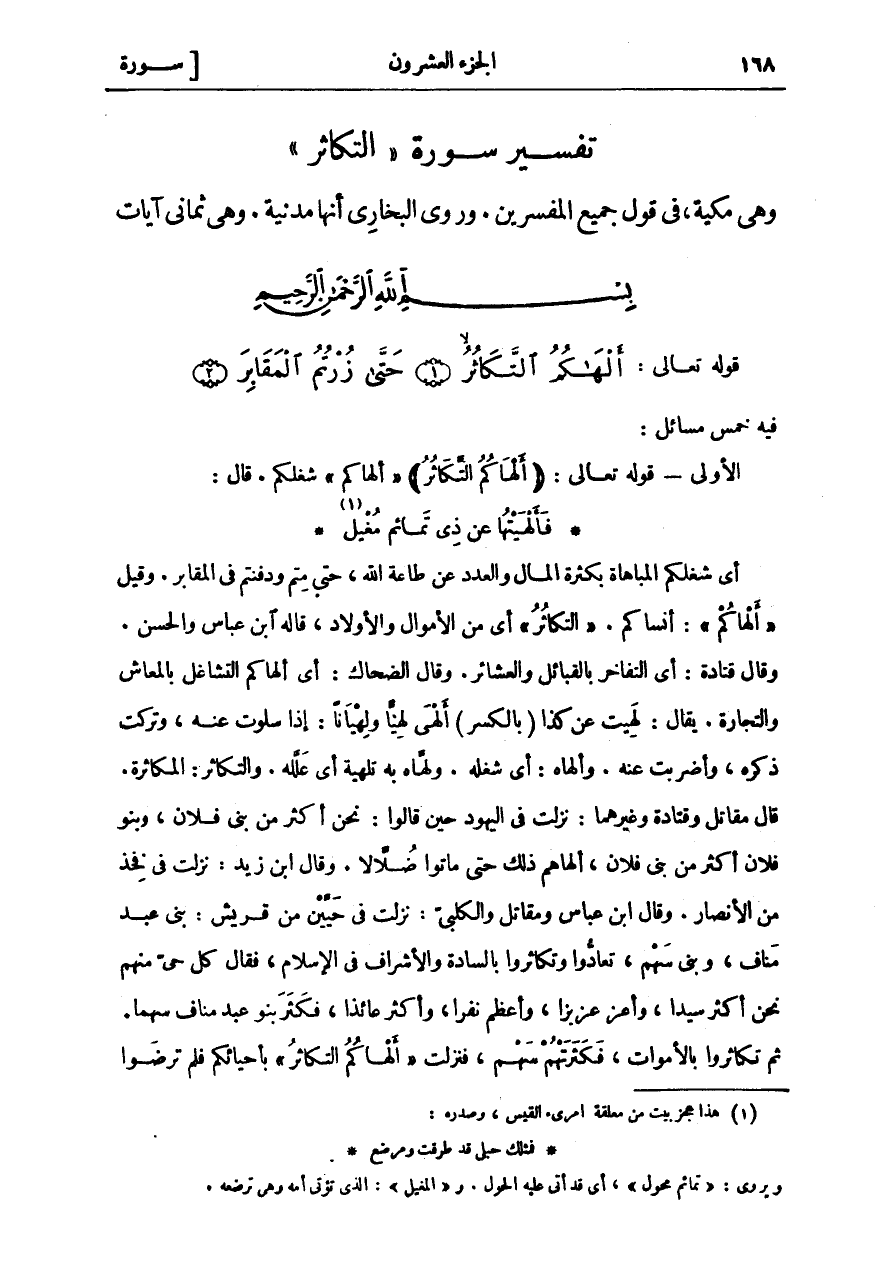 ١٦٨ الجزء العشرون [ ســورة
تفســير ســورة « التكاثر »
وهى مكية، فى قول جميع المفسرين . وروى البخارى أنها مدنية . وهى ثمانى آيات
بِسْمِ ٱللَّهِ ٱلرَّحْمَٰنِ ٱلرَّحِيمِ
قوله تعـالى : أَلْهَىٰكُمُ ٱلتَّكَاثُرُ ۝١ حَتَّىٰ زُرْتُمُ ٱلْمَقَابِرَ ۝٢
فيه خمس مسائل :
الأولى — قوله تعـالى : ﴿ أَلْهَاكُمُ التَّكَاثُرُ ﴾ « ألهاكم » شغلكم . قال :
* فَأَلْهَيْتُهَا عن ذِى تَمَـائم مُغْيِلِ (١) *
أى شغلكم المباهاة بكثرة المـال والعدد عن طاعة الله ، حتى مِتم ودفنتم فى المقابر . وقيل
« أَلْهَاكُمْ » : أنساكم . « التكاثُرُ » أى من الأموال والأولاد ، قاله آبن عباس والحسن .
وقال قتادة : أى التفاخر بالقبائل والعشائر . وقال الضحاك : أى ألهاكم التشاغل بالمعاش
والتجارة . يقال : لَهِيت عن كذا ( بالكسر ) أَلْهَى لُهِيًّا ولِهْيَانًا : إذا سلوت عنـه ، وتركت
ذكره ، وأضربت عنه . وألهاه : أى شغله . ولهَّاه به تلهية أى عَلَّله . والتكاثر : المكاثرة .
قال مقاتل وقتادة وغيرهما : نزلت فى اليهود حين قالوا : نحن أكثر من بنى فـلان ، وبنو
فلان أكثر من بنى فلان ، ألهاهم ذلك حتى ماتوا ضُـلَّالا . وقال ابن زيد : نزلت فى فخذ
من الأنصار . وقال ابن عباس ومقاتل والكلبىّ : نزلت فى حَيَّيْن من قـريش : بنى عبـد
مَناف ، وبنى سَهْم ، تعادُّوا وتكاثروا بالسادة والأشراف فى الإسلام ، فقال كل حىّ منهم
نحن أكثر سيدا ، وأعز عزيزا ، وأعظم نفرا، وأكثر عائذا ، فكَثَرَ بنو عبد مناف سهما .
ثم تكاثروا بالأموات ، فَكَثَرَتْهُمْ سَهْـم ، فنزلت « أَلْهـاكُمُ التكاثرُ » بأحيائكم فلم ترضَـوا
(١) هذا عجز بيت من معلقة امرئ القيس ، وصدره :
* فمثلك حبلى قد طرقت ومرضع *
ويروى : « تمائم محول » ، أى قد أتى عليه الحول . و « المغيل » : الذى تؤتى أمه وهى ترضعه .